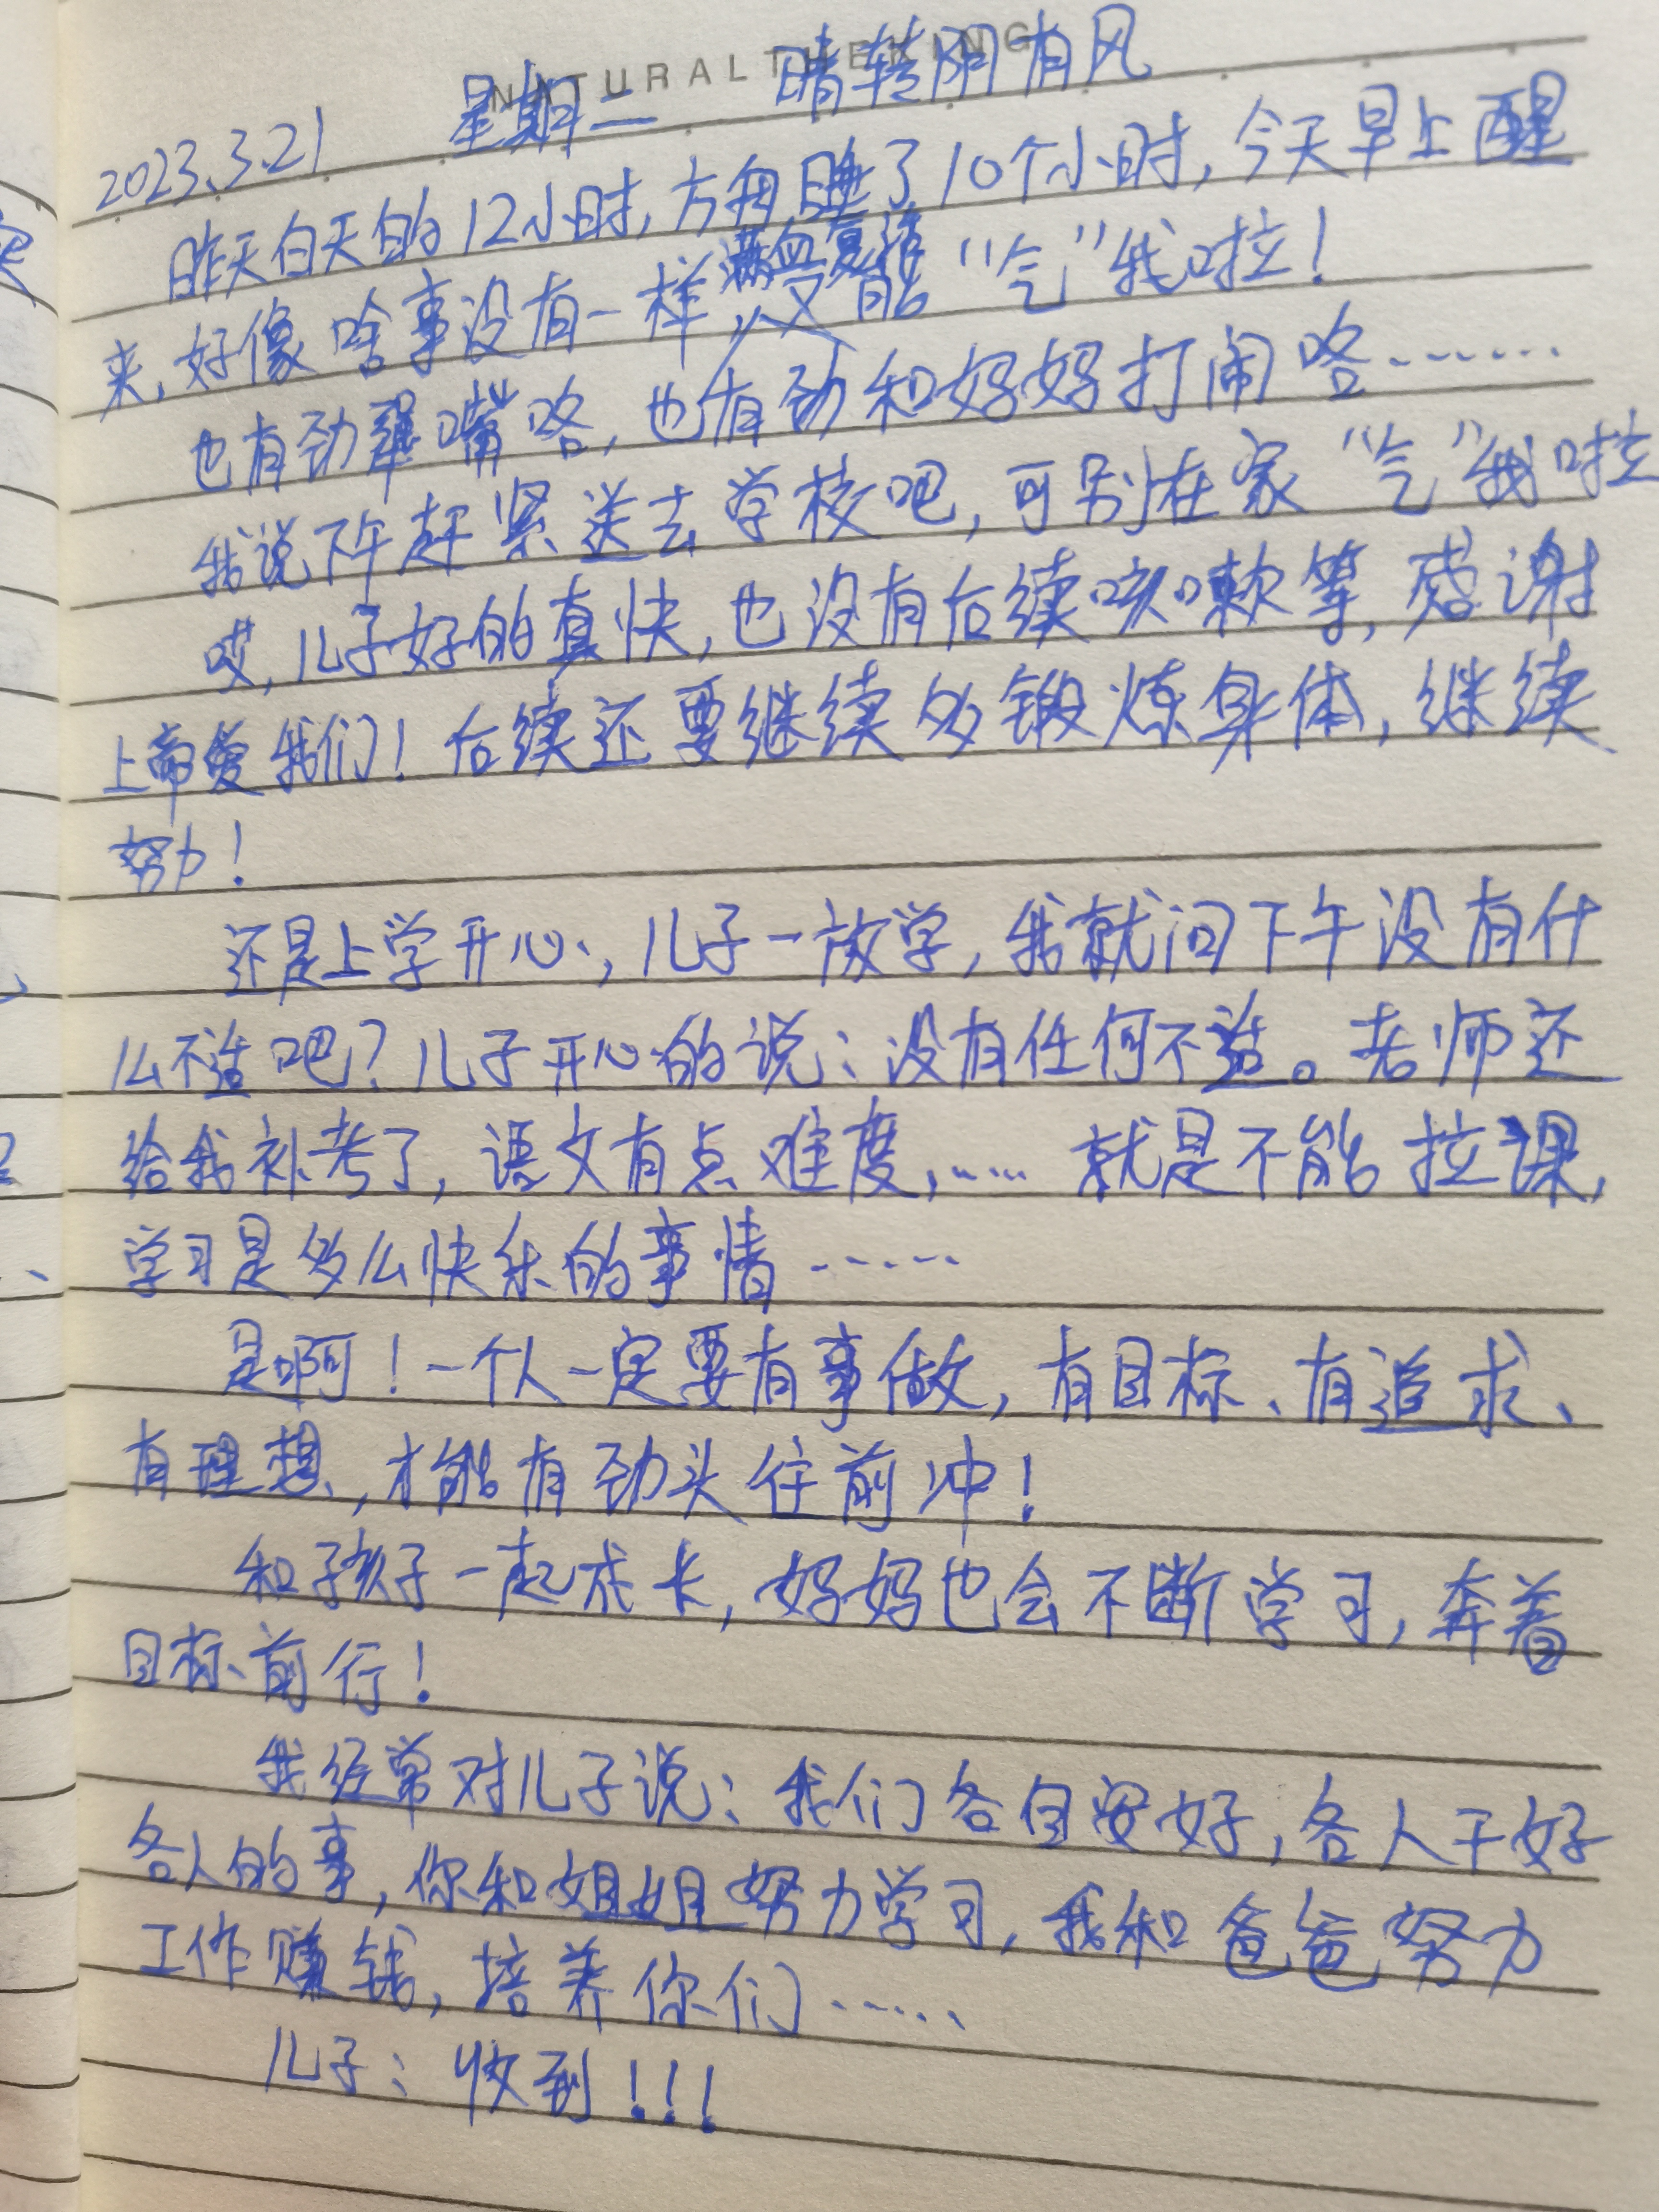 NATURALTHEKING
2023.3.21 星期二 晴转阴有风
昨天白天的12小时,方舟睡了10个小时,今天早上醒
来,好像啥事没有一样,满血复活,又能“气”我啦!
也有劲犟嘴咯,也有劲和妈妈打闹咯……
我说下午赶紧送去学校吧,可别在家“气”我啦
哎,儿子好的真快,也没有后续咳嗽等,感谢
上帝爱我们!后续还要继续多锻炼身体,继续
努力!
还是上学开心,儿子一放学,我就问下午没有什
么不适吧?儿子开心的说:没有任何不适。老师还
给我补考了,语文有点难度,……就是不能拉课,
学习是多么快乐的事情……
是啊!一个人一定要有事做,有目标、有追求、
有理想,才能有劲头往前冲!
和孩子一起成长,妈妈也会不断学习,奔着
目标前行!
我经常对儿子说:我们各自安好,各人干好
各人的事,你和姐姐努力学习,我和爸爸努力
工作赚钱,培养你们……
儿子:收到!!!